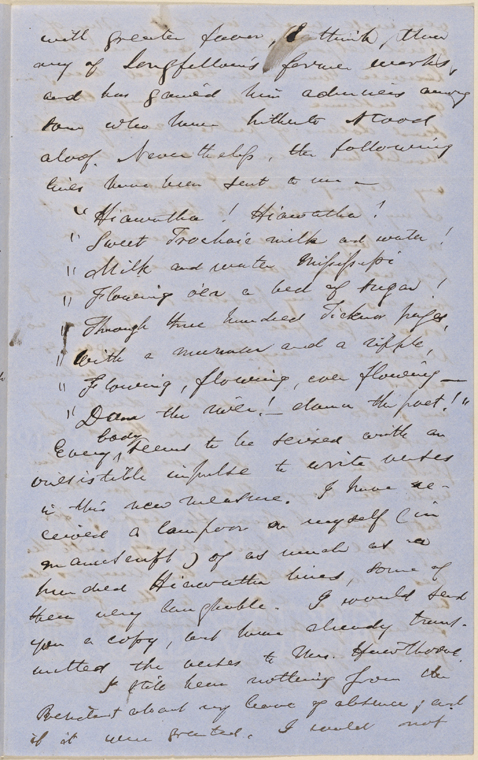 with greater favor, I think, than
any of Longfellow's former works,
and has gained him admirers among
some who have hitherto stood
aloof. Nevertheless, the following
lines have been sent to me —
"Hiawatha! Hiawatha!
"Sweet Trochaic milk and water!
"Milk and water Mississippi
"Flowing o'er a bed of sugar!
"Through three hundred Ticknor pages,
"With a murmur and a ripple,
"Flowing, flowing, ever flowing —
"Dam the river! — damn the poet!"
Every body seems to be seized with an
irresistible impulse to write verses
in this new measure. I have re-
ceived a lampoon on myself (in
manuscript) of as much as a
hundred Hiawatha lines, some of
them very laughable. I would send
you a copy, but have already trans-
mitted the verses to Mrs. Hawthorne.
I still hear nothing from the
President about my leave of absence; and
if it were granted, I would not